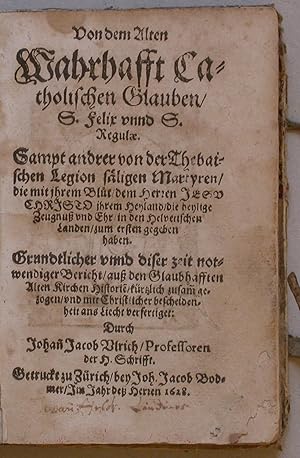 Von dem Alten
Wahrhafft Ca-
tholischen Glauben/
S. Felix vnnd S.
Regulæ.
Sampt andrer von der Thebai-
schen Legion säligen Martyren/
die mit jhrem Blůt/dem Herren JESV
CHRISTO jhrem Heyland/die heylige
Zeugnuß vnd Ehr in den Helvetischen
Landen/zum ersten gegeben
haben.
Grundtlicher vnnd diser zeit not-
wendiger Bericht/auß den Glaubhafften
Alten Kirchen Historiē/kürtzlich zusam̄ ge-
zogen/vnd mit Christlicher bescheiden-
heit ans Liecht verfertiget:
Durch
Johañ Jacob Vlrich/Professoren
der H. Schrifft.
Getruckt zu Zürich/bey Joh. Jacob Bod-
mer/Im Jahr deß Herren 1628.